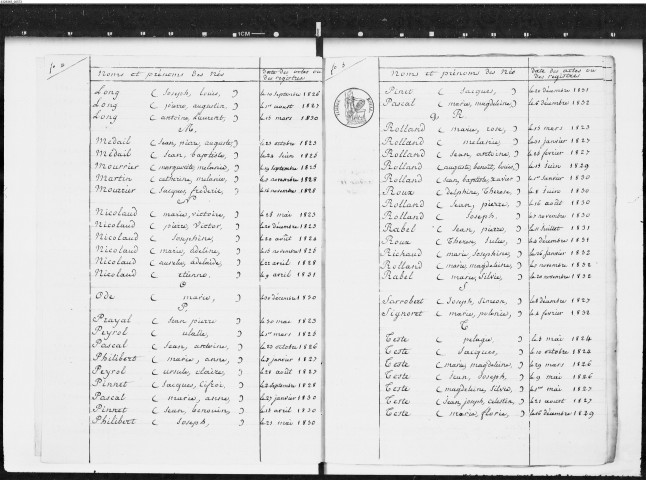 fo 2
Noms et prénoms des Nés
date des actes ou des registres
Long ( Joseph, Louis, ) le 10 septembre 1826
Long ( pierre, augustin, ) le 1er aoust 1827
Long ( antoine, Laurent, ) le 15 mars 1830
M.
Médail ( Jean, pierre, auguste ) le 23 octobre 1823
Médail ( Jean, baptiste, ) le 24 Juin 1825
Mourrier ( marguerite, mélanie, ) le 19 septembre 1825
Martin ( catherine, mélanie, ) le 10 novembre 1828
Mourrier ( Jacques, frédéric, ) le 16 novembre 1828
N
Nicolaud ( marie, victoire, ) le 18 mai 1823
Nicolaud ( pierre, Victor, ) le 20 décembre 1823
Nicolaud ( Joséphine, ) le 20 août 1824
Nicolaud ( marie, adeline, ) le 20 novembre 1825
Nicolaud ( aurélie, adélaïde, ) le 22 avril 1828
Nicolaud ( étienne, ) le 9 avril 1831
O
Ode ( marie, ) le 20 décembre 1830
P.
Prayal ( Jean pierre ) le 30 mai 1823
Peyrol ( eulalie, ) le 1er mars 1825
Pascal ( Jean, antoine, ) le 22 octobre 1826
Philibert ( marie, anne, ) le 8 janvier 1827
Peyrol ( ursule, claire, ) le 28 août 1827
Pinnet ( Jacques, ) le 2 septembre 1828
Pascal ( marie, anne, ) le 27 janvier 1830
Pinnet ( Jean, ) le 13 avril 1830
Philibert ( Joseph, ) le 23 mai 1830
fo 3
Noms et prénoms des Nés
date des actes ou des registres
Pinet ( Jacques, ) le 12 décembre 1831
Pascal ( marie, magdeleine, ) le 6 décembre 1832
R.
Rolland ( marie, rose, ) le 15 mars 1823
Rolland ( mélanie, ) le 31 janvier 1825
Rolland ( Jean, antoine, ) le 26 février 1827
Rolland ( auguste, benoît, Louis, ) le 15 Juin 1829
Rolland ( Jean, baptiste, xavier ) le 1er Janvier 1830
Roux ( delphine, Thérèse, ) le 8 Juin 1830
Rolland ( Jean, pierre, ) le 16 août 1830
Rolland ( Joseph, ) le 7 novembre 1830
Rabel ( Jean, pierre, ) le 20 Juillet 1831
Roux ( Thérèse, Julie, ) le 3 décembre 1831
Richaud ( marie, Joséphine, ) le 26 janvier 1832
Rolland ( marie, magdeleine, ) le 5 novembre 1832
Rabel ( marie, Silvie, ) le 20 novembre 1832
S
Sarrobert ( Joseph, Simeon, ) le 8 décembre 1827
Signoret ( marie, polonie, ) le 4 février 1832
T
Teste ( pelagie, ) le 5 mai 1824
Teste ( Jacques, ) le 10 octobre 1824
Teste ( marie, magdeleine, ) le 29 mars 1826
Teste ( Jean, Joseph, ) le 9 mai 1826
Teste ( magdeleine, Silvie, ) le 1er mai 1827
Teste ( Jean, Joseph, celestin, ) le 21 aoust 1827
Teste ( marie, florie, ) le 16 décembre 1829